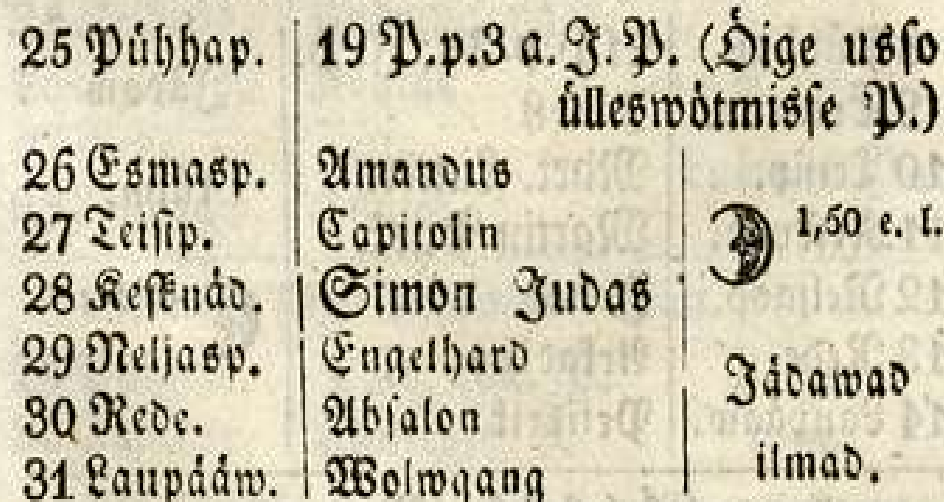 25 Pühhap. 19 P.p.3 a.J.P. (Öige usso
ülleswötmisse P.)
26 Esmasp. Amandus
27 Teisip. Capitolin 1,50 e. l.
28 Kesknäd. Simon Judas
29 Neljasp. Engelhard
Jädawad
30 Rede. Absalon
ilmad.
31 Laupääw. Wolwgang